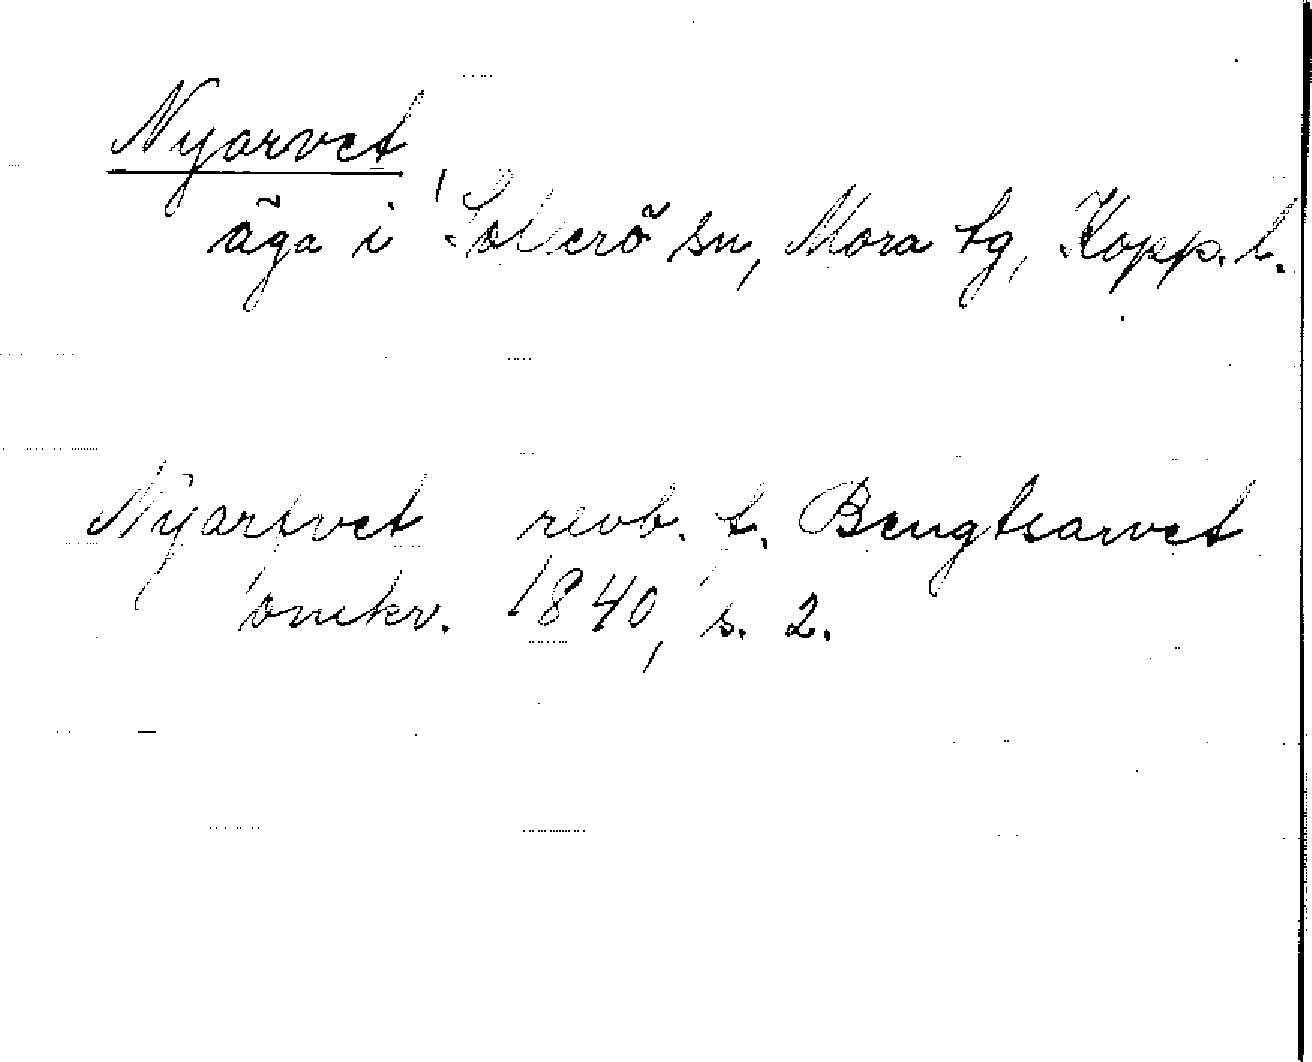 Nyarvet
äga i Sollerö sn, Mora tg, Kopp. l.
Nyarfvet revb. t. Bengtsarvet
omkr. 1840, s. 2.